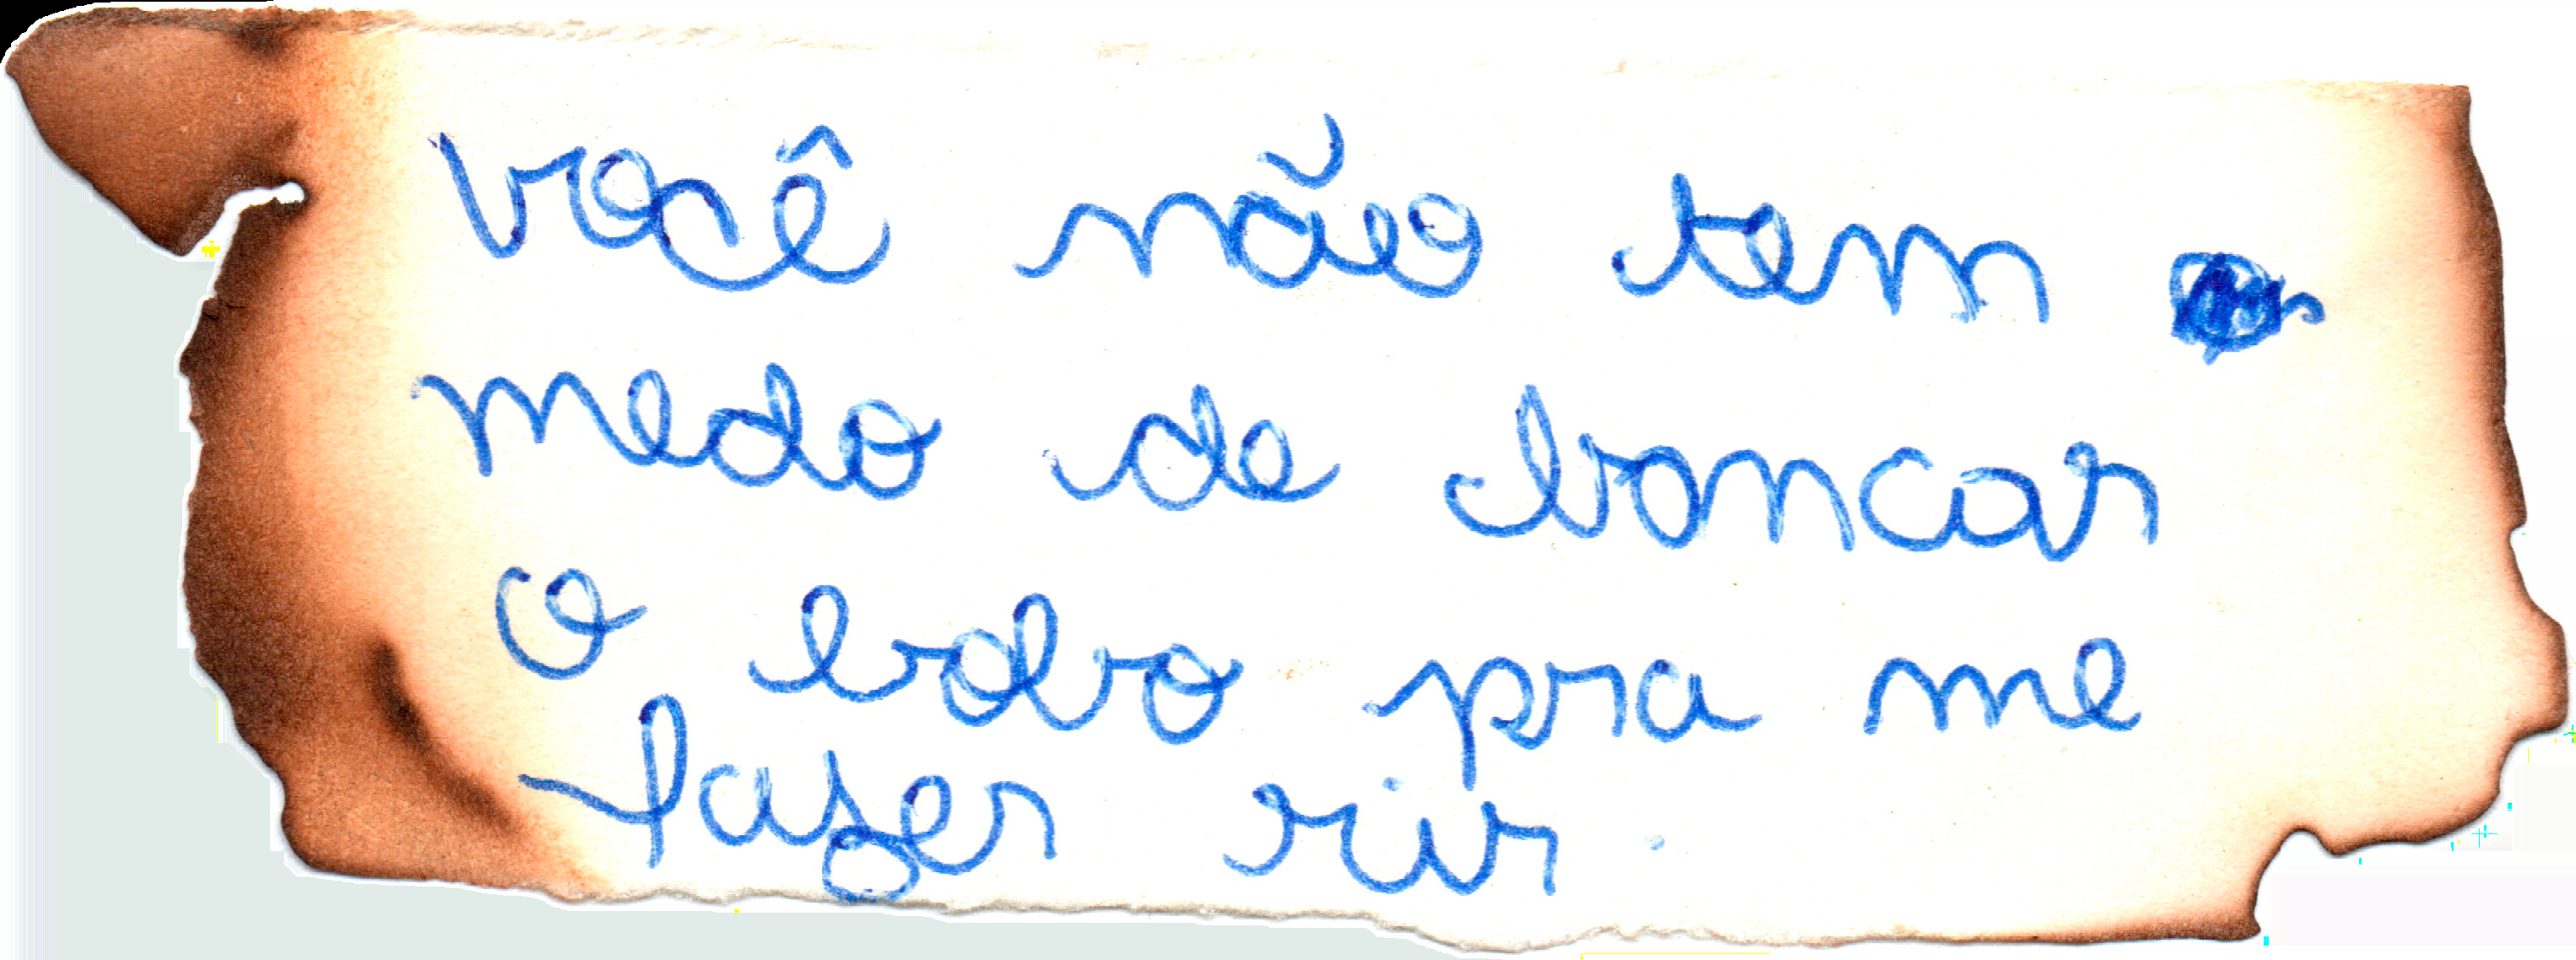 você não tem
medo de bancar
o bobo pra me
fazer rir.